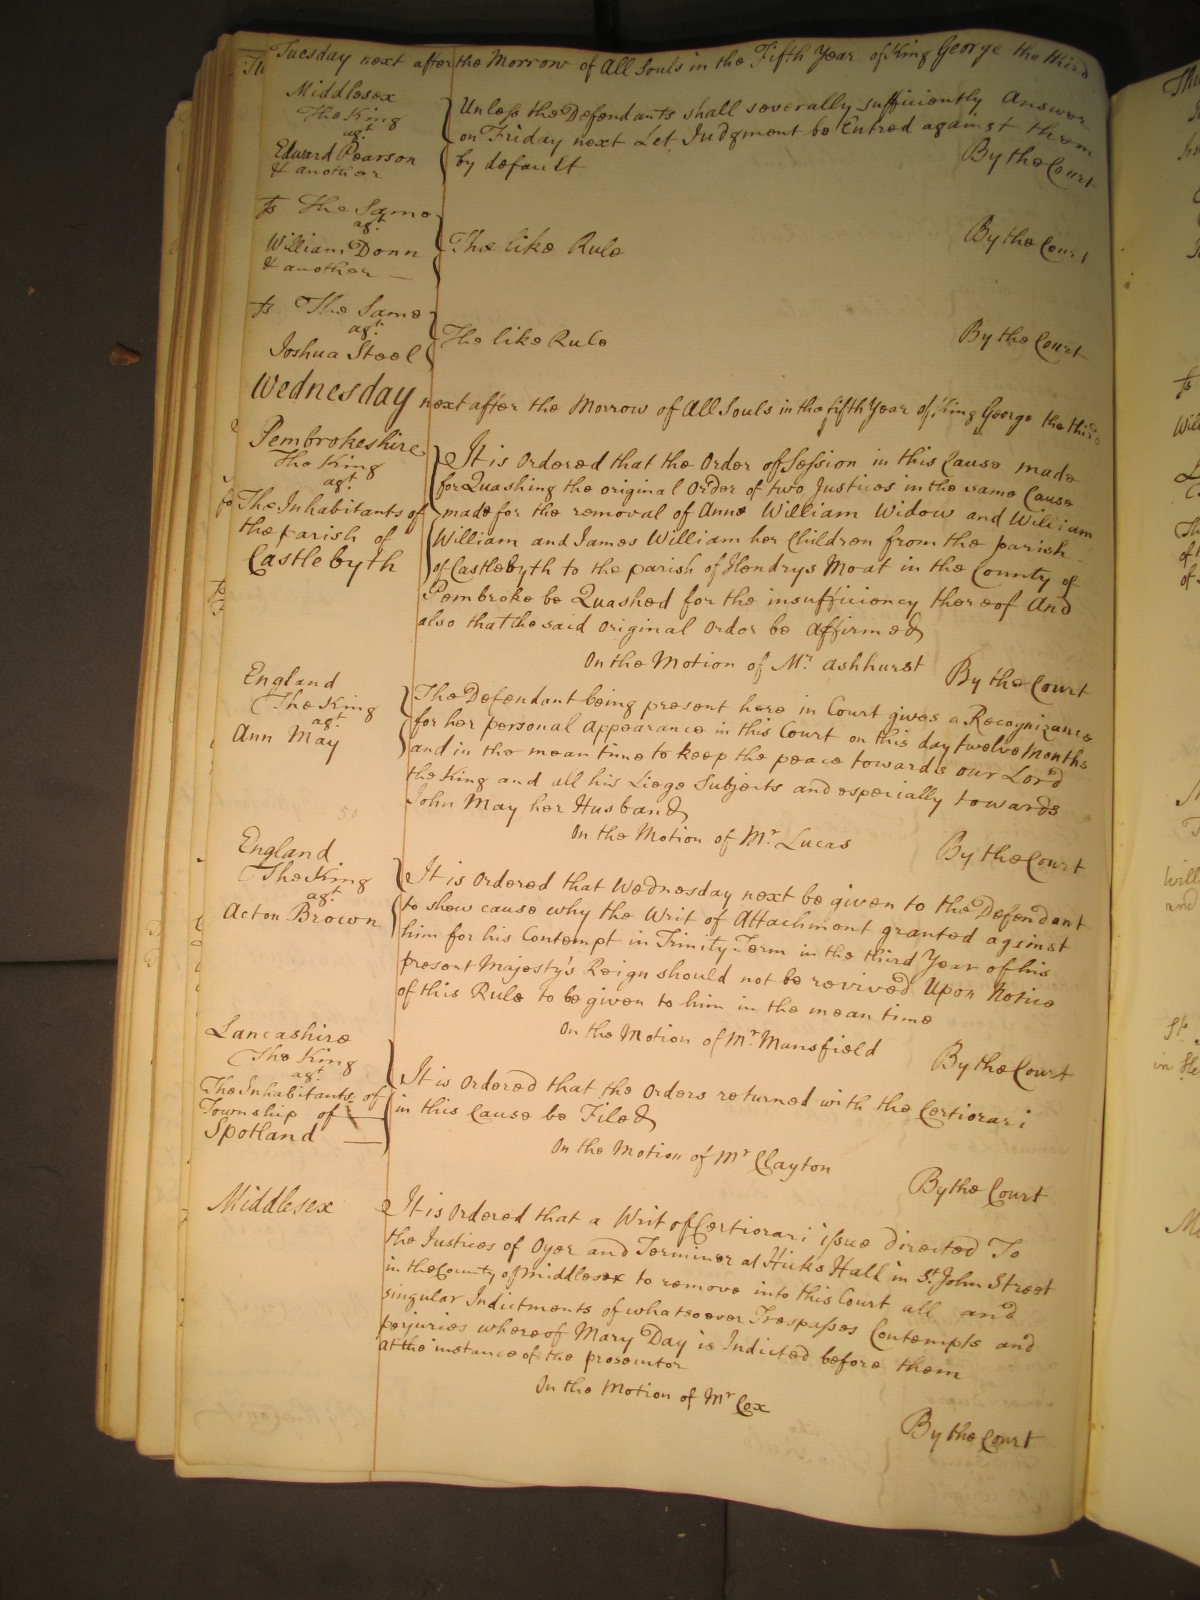 Tuesday next after the Morrow of All Souls in the Fifth Year of King George the third
Middlesex
The King
agt
Edward Pearson
& another
Unless the Defendants shall severally sufficiently Answer
on Friday next Let Judgment be Entred against them
by default
By the Court
The Same
agt
William Donn
& another
The like Rule
By the Court
The Same
agt
Joshua Steel
The like Rule
By the Court
Wednesday next after the Morrow of All Souls in the fifth Year of King George the third
Pembrokeshire
The King
agt
The Inhabitants of
the parish of
Castlebyth
It is Ordered that the Order of Session in this Cause made
for Quashing the original Order of two Justices in the same Cause
made for the removal of Anne William Widow and William
William and James William her Children from the parish
of Castlebyth to the parish of Hendrys Moat in the County of
Pembroke be Quashed for the insufficiency thereof And
also that the said original Order be affirmed
On the Motion of Mr. Ashhurst
By the Court
England
The King
agt
Ann May
The Defendant being present here in Court gives a Recognizance
for her personal Appearance in this Court on this day twelve Months
and in the mean time to keep the peace towards our Lord
the King and all his Liege Subjects and especially towards
John May her Husband
On the Motion of Mr. Lucas
By the Court
England
The King
agt
Acton Brown
It is Ordered that Wednesday next be given to the Defendant
to shew cause why the Writ of Attachment granted against
him for his Contempt in Trinity Term in the third Year of his
present Majesty's Reign should not be revived Upon Notice
of this Rule to be given to him in the mean time
On the Motion of Mr. Mansfield
By the Court
Lancashire
The King
agt
The Inhabitants of
Township of
Spotland
It is Ordered that the Orders returned with the Certiorari
in this Cause be Filed
On the Motion of Mr Clayton
By the Court
Middlesex
It is Ordered that a Writ of Certiorari issue directed To
the Justices of Oyer and Terminer at Hicks Hall in St. John Street
in the County of Middlesex to remove into this Court all and
singular Indictments of whatsoever Trespasses Contempts and
perjuries whereof Mary Day is Indicted before them
at the instance of the prosecutor
On the Motion of Mr Cox
By the Court